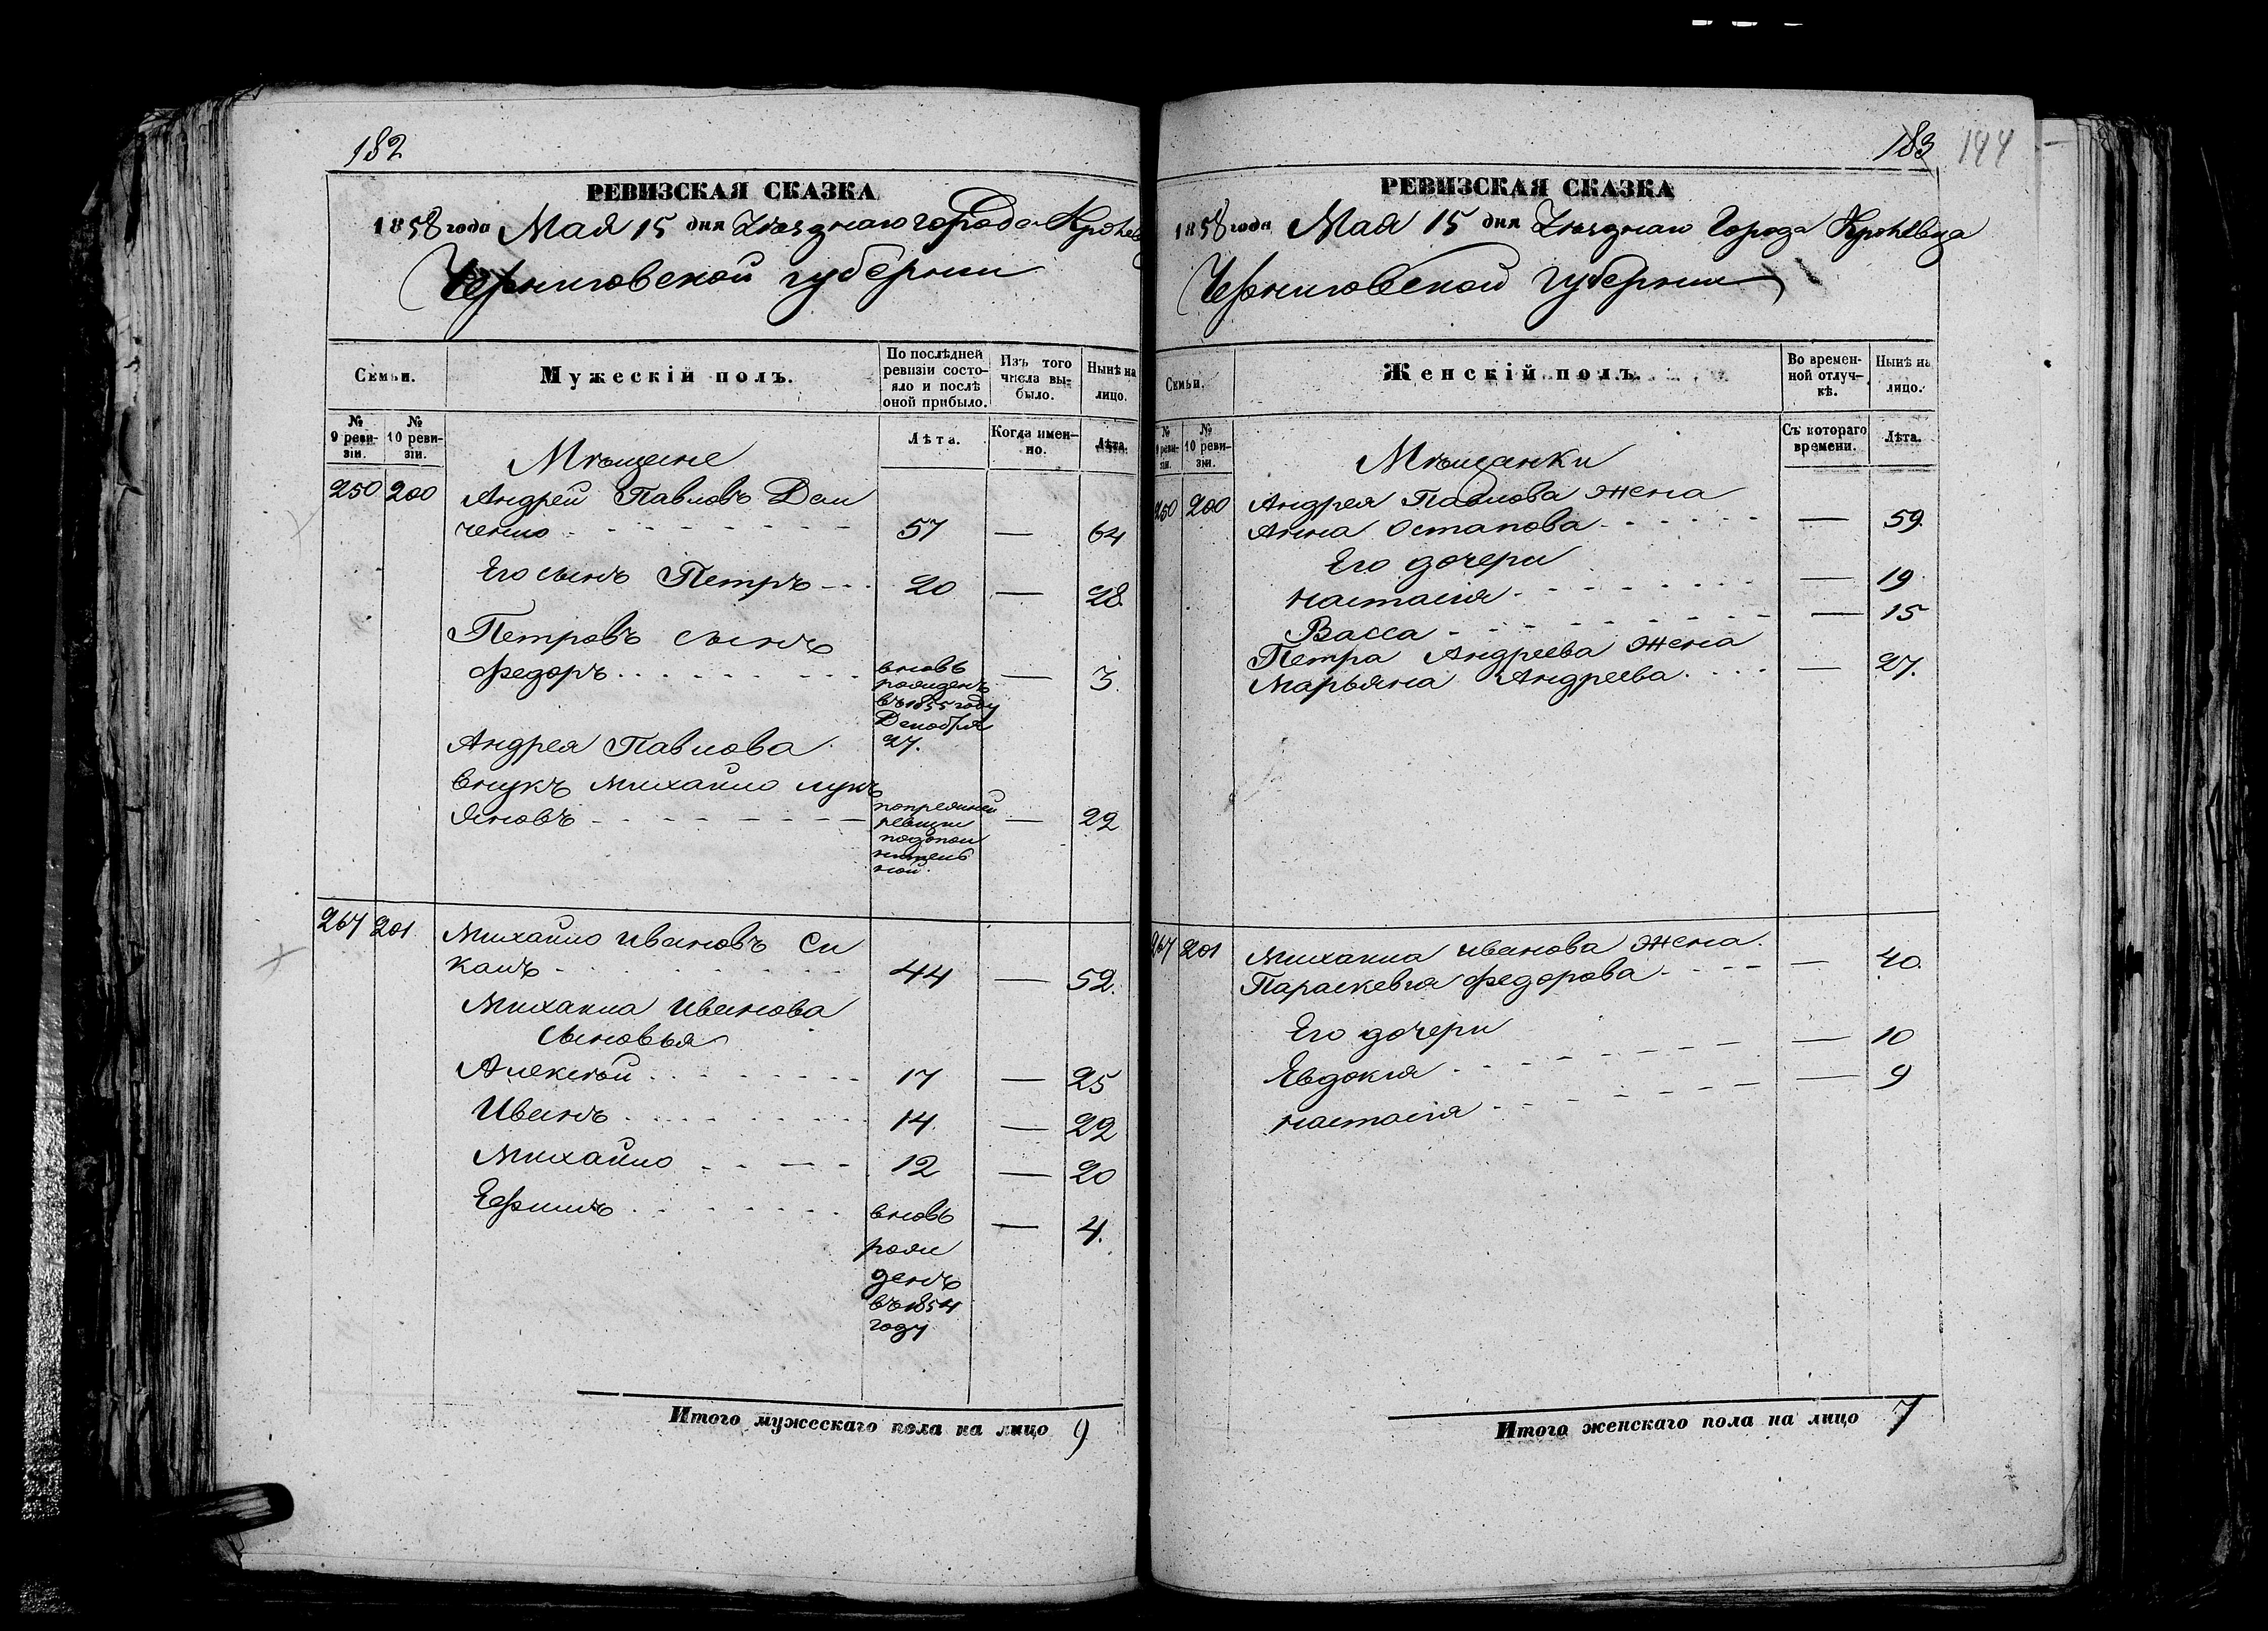 182
РЕВИЗСКАЯ СКАЗКА
1858 года Мая 15 дня Уѣзднаго города Кролев
Черниговской губерніи
Семьи.
Мужескій полъ.
По послѣдней ревизіи состояло и послѣ оной прибыло.
Изъ того числа выбыло.
Нынѣ на лицо.
№ 9 ревизіи.
№ 10 ревизіи.
Лѣта.
Когда именно.
Лѣта.
Мѣщане
250 200 Андрей Павловъ Дем
ченко 57 — 64
Его сынъ Петръ 20 — 28.
Петровъ сынъ
Федоръ вновь рожденъ въ 1855 году Декабря 27. — 3.
Андрея Павлова
внукъ Михайло Лукъ
яновъ по прежней ревизіи по дополнительной. — 22
267 201 Михайло Ивановъ Си
44 — 52.
Михаила Иванова
Сыновья
Алексѣй 17 — 25
Иванъ 14. — 22
Михайло 12 — 20
Ефимъ вновь рожденъ въ 1854 году — 4.
Итого мужескаго пола на лицо 9
183 144
РЕВИЗСКАЯ СКАЗКА
1858 года Мая 15 дня Уѣзднаго Города Кролевца
Черниговской Губерніи
Семьи.
Женскій полъ.
Во временной отлучкѣ.
Нынѣ на лицо.
№ 9 ревизіи.
№ 10 ревизіи.
Съ котораго времени.
Лѣта.
Мѣщанки
250 200 Андрея Павлова жена
Анна Остапова — 59.
Его дочери
Настасія — 19.
Васса — 15
Петра Андреева жена
Марьяна Андреева — 27.
267 201 Михаила Иванова жена.
Параскевія Федорова — 40.
Его дочери
Евдокія — 10
Настасія — 9
Итого женскаго пола на лицо 7